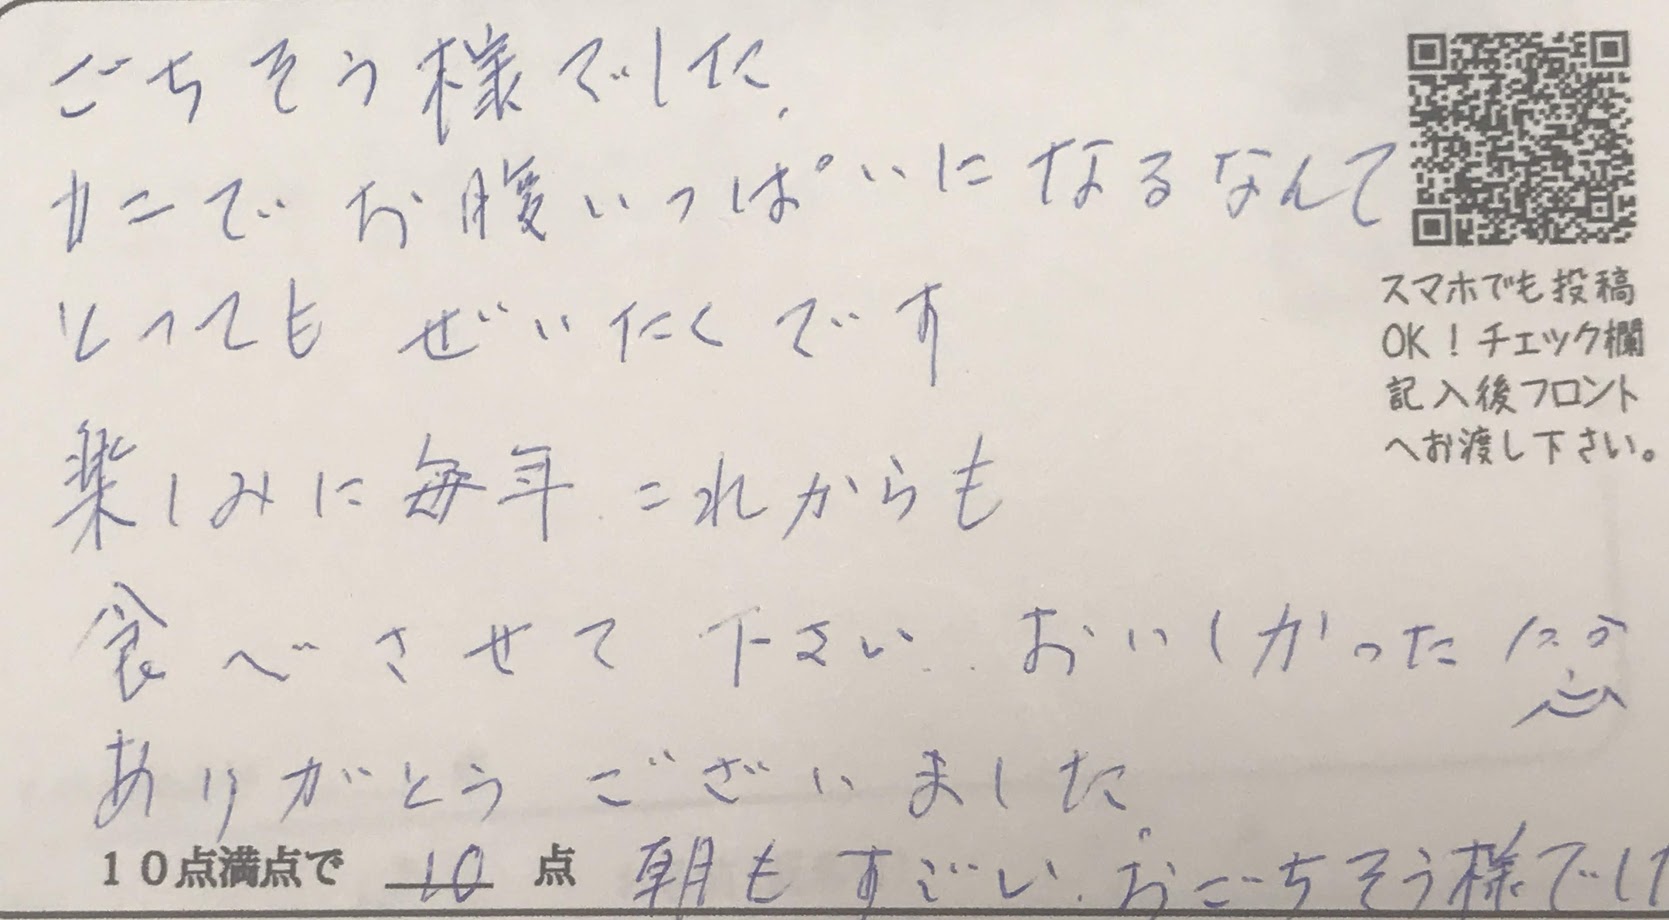 ごちそう様でした。
カニでお腹いっぱいになるなんて
とってもぜいたくです
楽しみに毎年これからも
食べさせて下さい。おいしかった
ありがとうございました。
10点満点で 10 点 朝もすごい。おごちそう様でした
スマホでも投稿
OK！チェック欄
記入後フロント
へお渡し下さい。